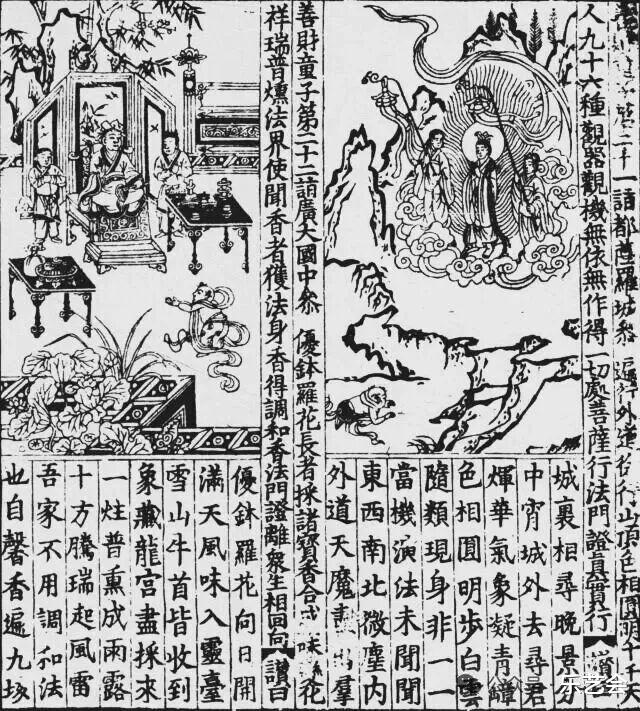 二十一詣都薩羅城參 遍行外道 行山頂色相圓明千 大
人九十六種觀器觀機無依無作得一切處菩薩行法門證真實行 讚曰
城裏相尋晚景分
中宵城外去尋君
煇華氣象凝青嶂
色相圓明步白雲
隨類現身非一一
當機演法未聞聞
東西南北微塵內
外道天魔 羣
善財童子第二十二詣廣大國中參 優鉢羅花長者採諸寶香合成 味
祥瑞普燻法界使聞香者獲法身香得調和香法門證離衆生相回向 讚曰
優鉢羅花向日開
滿天風味入靈臺
雪山牛首皆收到
象藏龍宮盡採來
一炷普熏成雨露
十方騰瑞起風雷
吾家不用調和法
也自馨香遍九垓
乐艺会